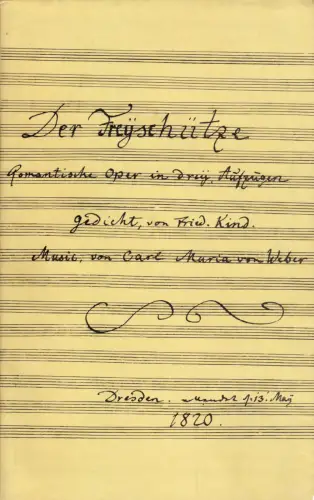 Der Freÿschütze
Romantische Oper in dreÿ Aufzügen
gedicht, von Fried. Kind.
Music, von Carl Maria von Weber
Dresden. d. 13. Maÿ
1820.